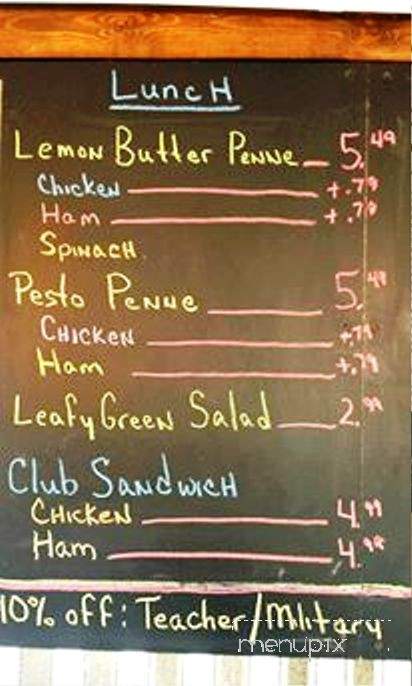 Lunch
Lemon Butter Penne 5.49
Chicken +.79
Ham +.79
Spinach
Pesto Penne 5.49
Chicken +.79
Ham +.79
Leafy Green Salad 2.99
Club Sandwich
Chicken 4.99
Ham 4.99
10% off: Teacher/Military
menupix